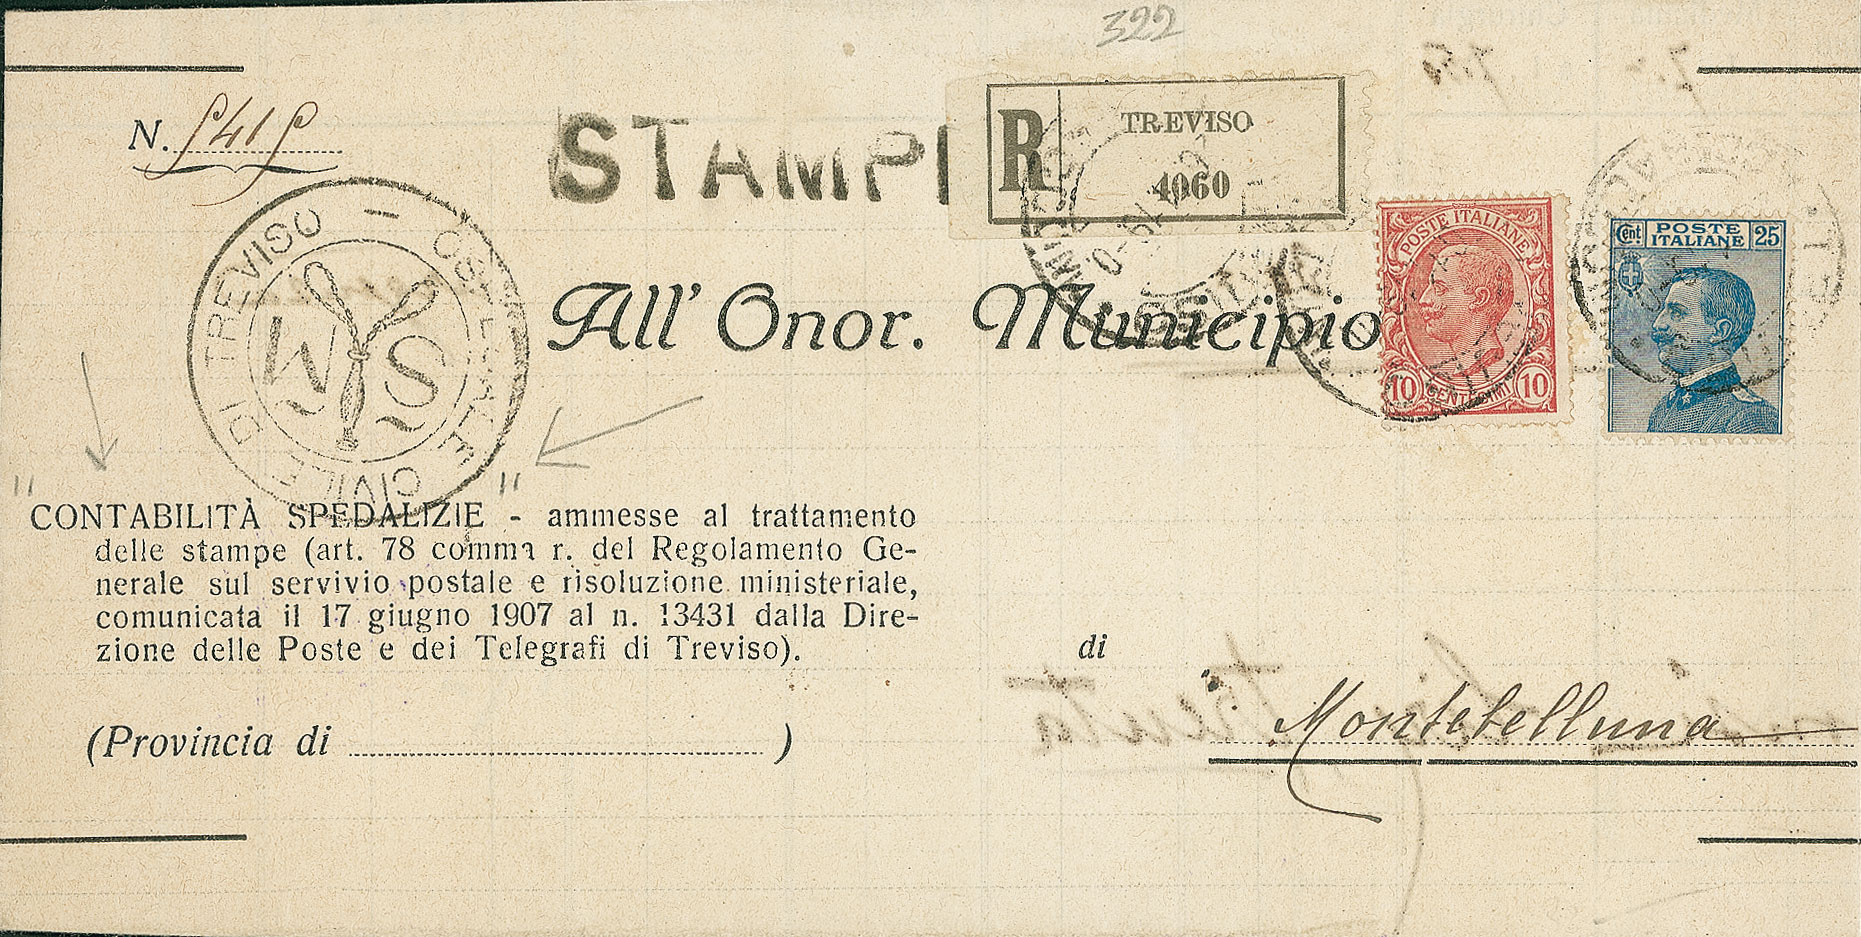 322
N. 5415
STAMP
R
TREVISO
4060
OSPEDALE CIVILE DI TREVISO
M S
POSTE ITALIANE
10 CENTESIMI 10
Cent. POSTE ITALIANE 25
All' Onor. Municipio
"CONTABILITÀ SPEDALIZIE" - ammesse al trattamento
delle stampe (art. 78 comma r. del Regolamento Ge-
nerale sul servivio postale e risoluzione ministeriale,
comunicata il 17 giugno 1907 al n. 13431 dalla Dire-
zione delle Poste e dei Telegrafi di Treviso).
di
Montebelluna
(Provincia di )